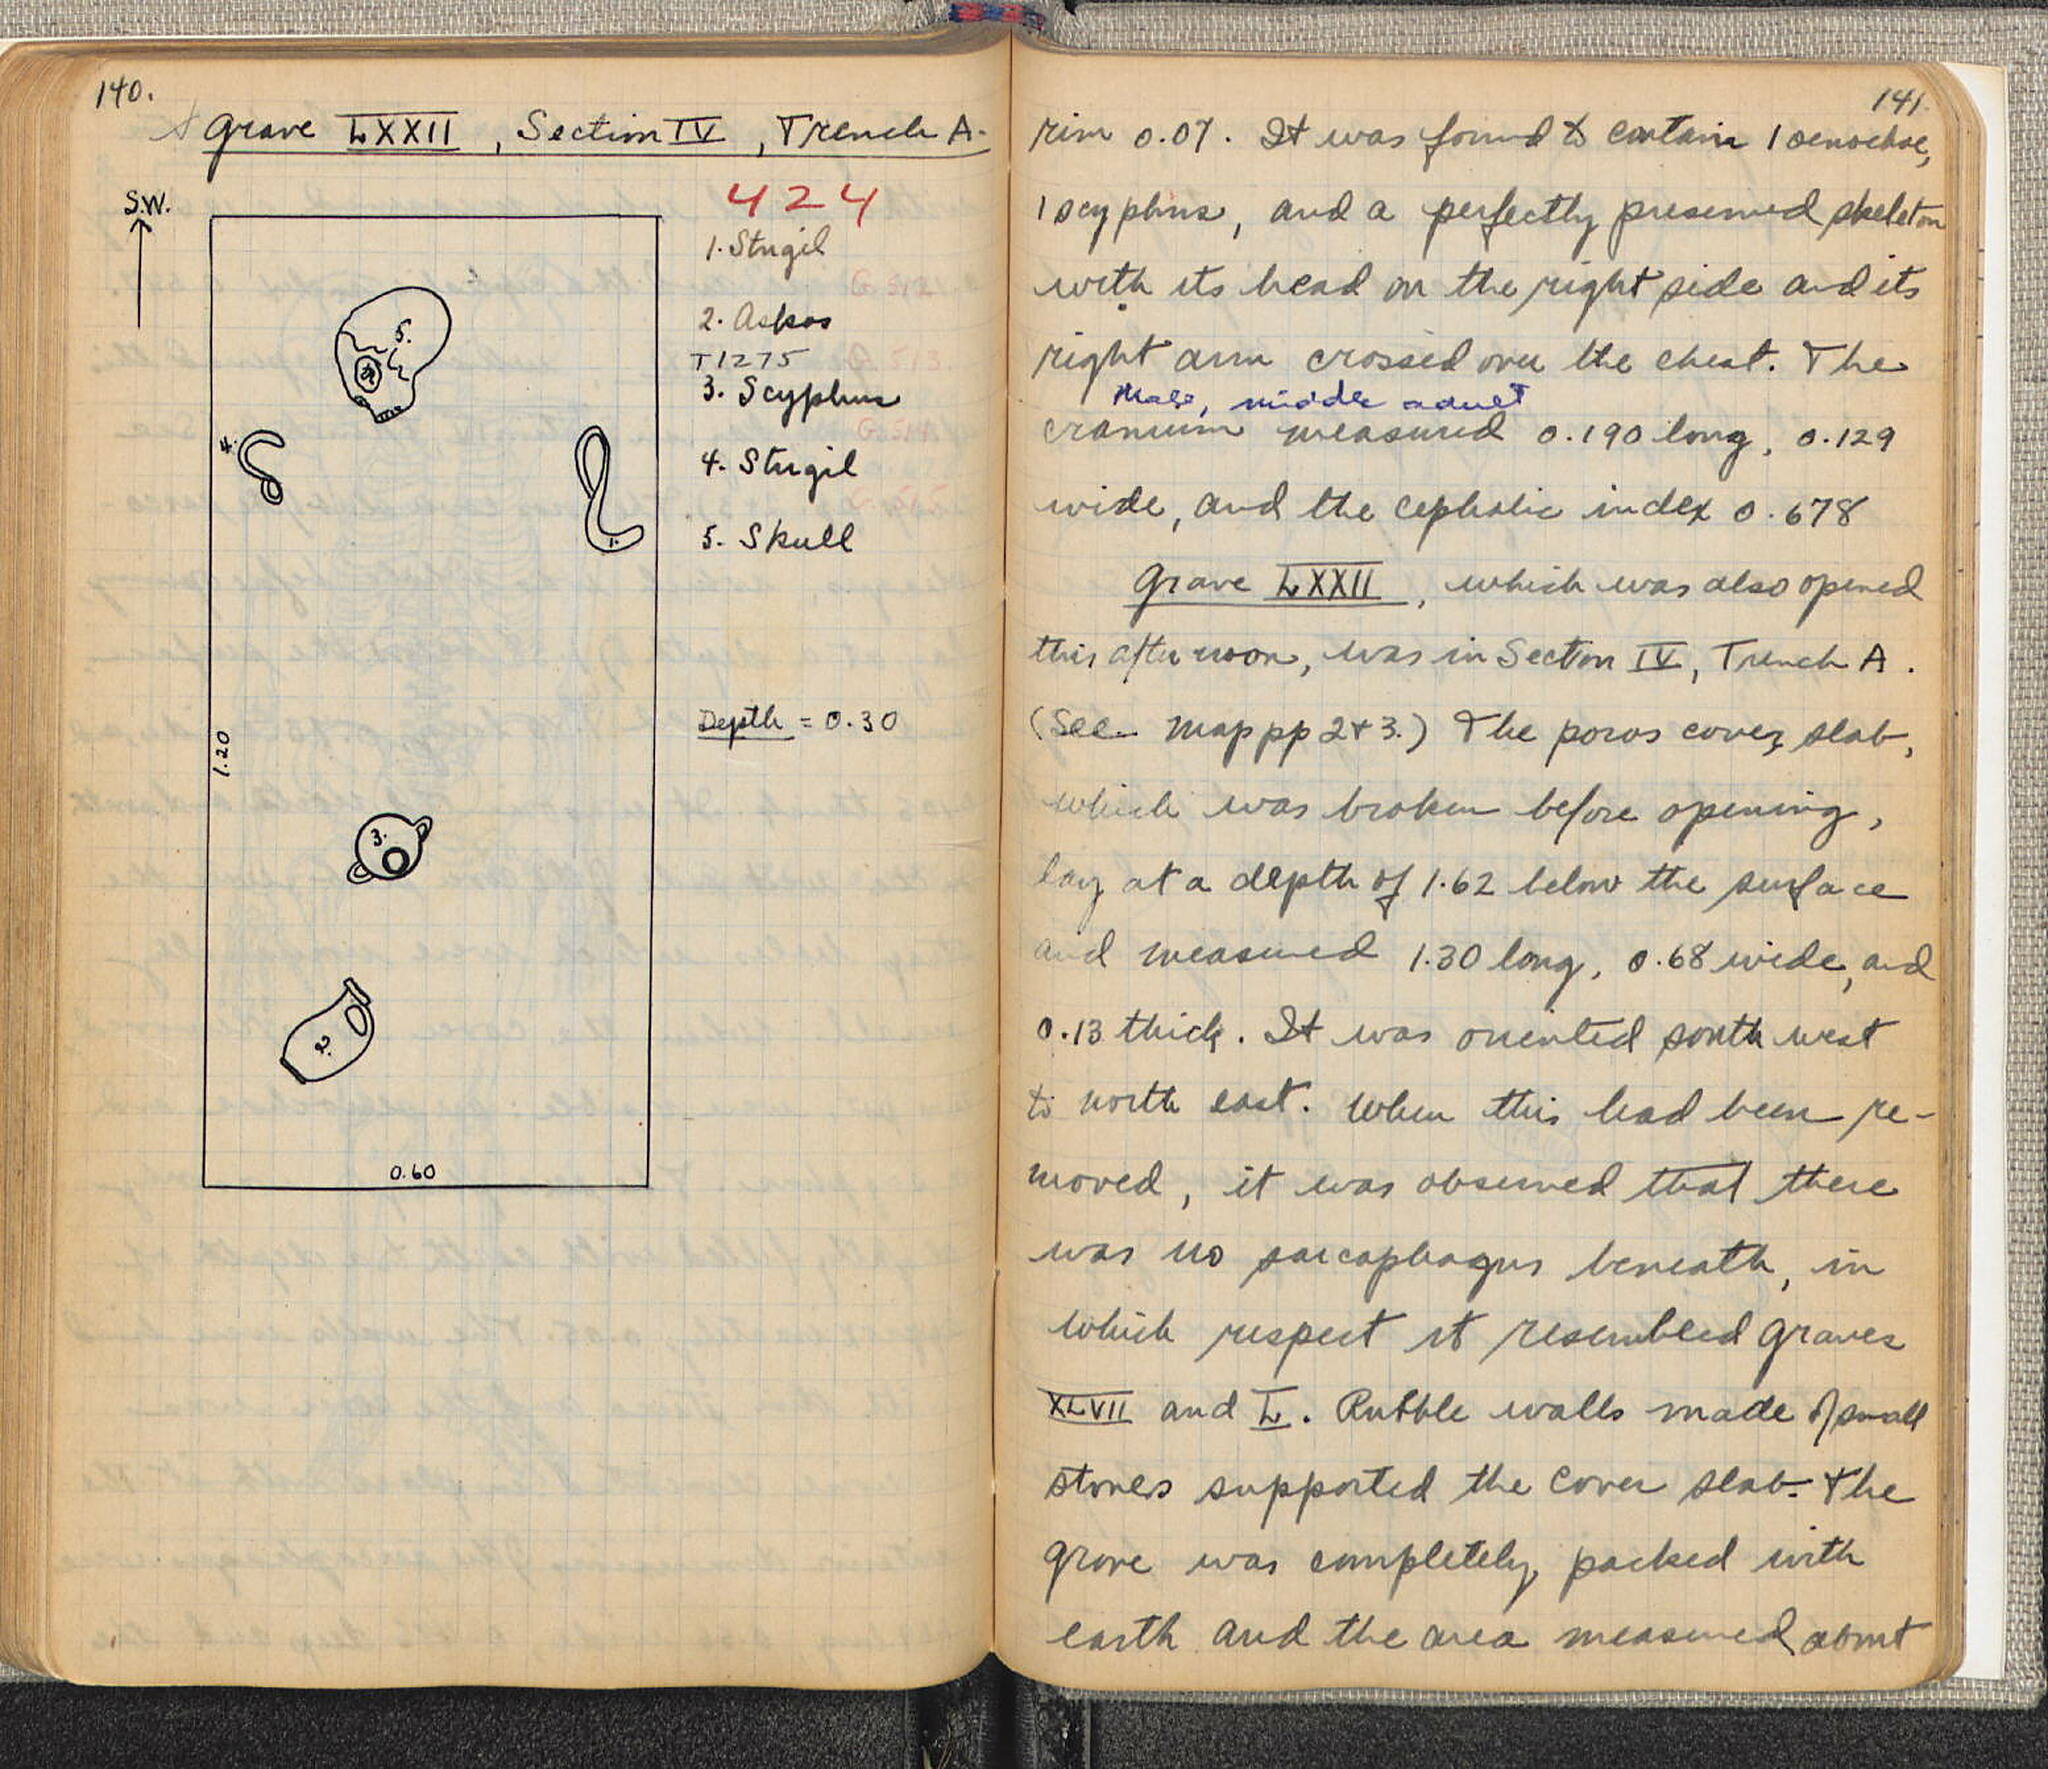 140.
Grave LXXII, Section IV, Trench A.
S.W.
424
1. Strigil
2. Askos
T1275
3. Scyphus
4. Strigil
5. Skull
Depth = 0.30
5.
4.
1.
1.20
3.
2.
0.60
141.
rim 0.07. It was found to contain 1 oenochoe,
1 scyphus, and a perfectly preserved skeleton
with its head on the right side and its
right arm crossed over the chest. The
Male, middle adult
cranium measured 0.190 long, 0.129
wide, and the cephalic index 0.678
Grave LXXII, which was also opened
this afternoon, was in Section IV, Trench A.
(See map pp 2+3.) The poros cover slab,
which was broken before opening,
lay at a depth of 1.62 below the surface
and measured 1.30 long, 0.68 wide, and
0.13 thick. It was oriented south west
to north east. When this had been re-
moved, it was observed that there
was no sarcophagus beneath, in
which respect it resembled graves
XLVII and L. Rubble walls made of small
stones supported the cover slab. The
grave was completely packed with
earth and the area measured about